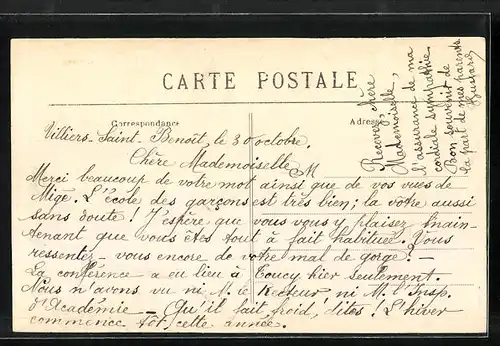 CARTE POSTALE
Correspondance
Adresse
Villiers-Saint-Benoît, le 30 octobre.
Chère Mademoiselle M
Merci beaucoup de votre mot ainsi que de vos vues de
Migé. L'école des garçons est très bien ; la votre aussi
sans doute ! J'espère que vous vous y plaisez main-
tenant que vous êtes tout à fait habituée. Vous
ressentez-vous encore de votre mal de gorge ? -
La conférence a eu lieu à Toucy hier seulement.
Nous n'avons vu ni M. le Recteur ni M. l'Insp.
d'Académie - Qu'il fait froid, dites ! L'hiver
commence tôt, cette année.
Recevez, chère
Mademoiselle,
l'assurance de ma
cordiale sympathie
Bon souvenir de
la part de mes parents